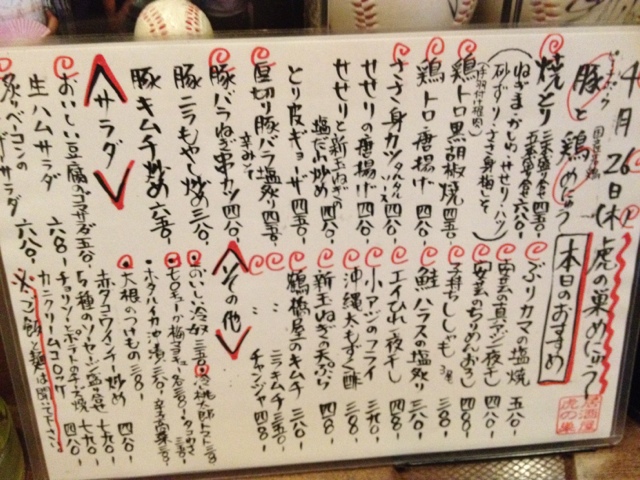 4月26日(木)
虎の巣めにう
本日のおすすめ
居酒屋
虎の巣
豚と鶏めにう
焼とり 三本盛り合せ 四五〇-
五本盛り合せ 六八〇-
ねぎま・かしわ・せせり・ハツ
砂ずり・ささ身梅しそ
鶏トロ黒胡椒焼 四五〇-
鶏トロ唐揚げ 四八〇-
ささ身カツ タルタルソース 四八〇-
せせりの唐揚げ 四八〇-
せせりと新玉ねぎの
塩だれ炒め 四八〇-
とり皮ギョーザ 四五〇-
厚切り豚バラ塩炙り 四五〇-
辛みそ
豚バラねぎ串カツ 四八〇-
豚ニラもやし炒め 三八〇-
豚キムチ炒め 六五〇-
<サラダ>
おいしい豆腐のゴマサラダ 五八〇-
生ハムサラダ 六八〇-
炙りベーコンの
サラダ 六八〇-
ぶりカマの塩焼 五八〇-
真アジ一夜干し 四八〇-
安芸のちりめんおろし 四八〇-
子持ちししゃも 3尾 三八〇-
鮭ハラスの塩炙り 三八〇-
エイひれ一夜干し 四八〇-
小アジのフライ 三九〇-
沖縄太もずく酢 三八〇-
新玉ねぎの天ぷら 四八〇-
鶴橋屋のキムチ 三八〇-
〃 ニラキムチ 三五〇-
〃 チャンジャ 四八〇-
<その他>
おいしい冷奴 三五〇-
冷桃太郎トマト 三八〇-
モロキュー
梅キュー 各三八〇-
タコわさ 三八〇-
ホタルイカ沖漬 三八〇-
辛子高菜 三八〇-
大根のつけもの 三八〇-
赤タコウインナー炒め 四八〇-
5種のソーセージ盛合せ 七九〇-
チョリソーとポテトのチーズ焼 七九〇-
カニクリームコロッケ 四八〇-
※ご飯と麺は聞いて下さい。